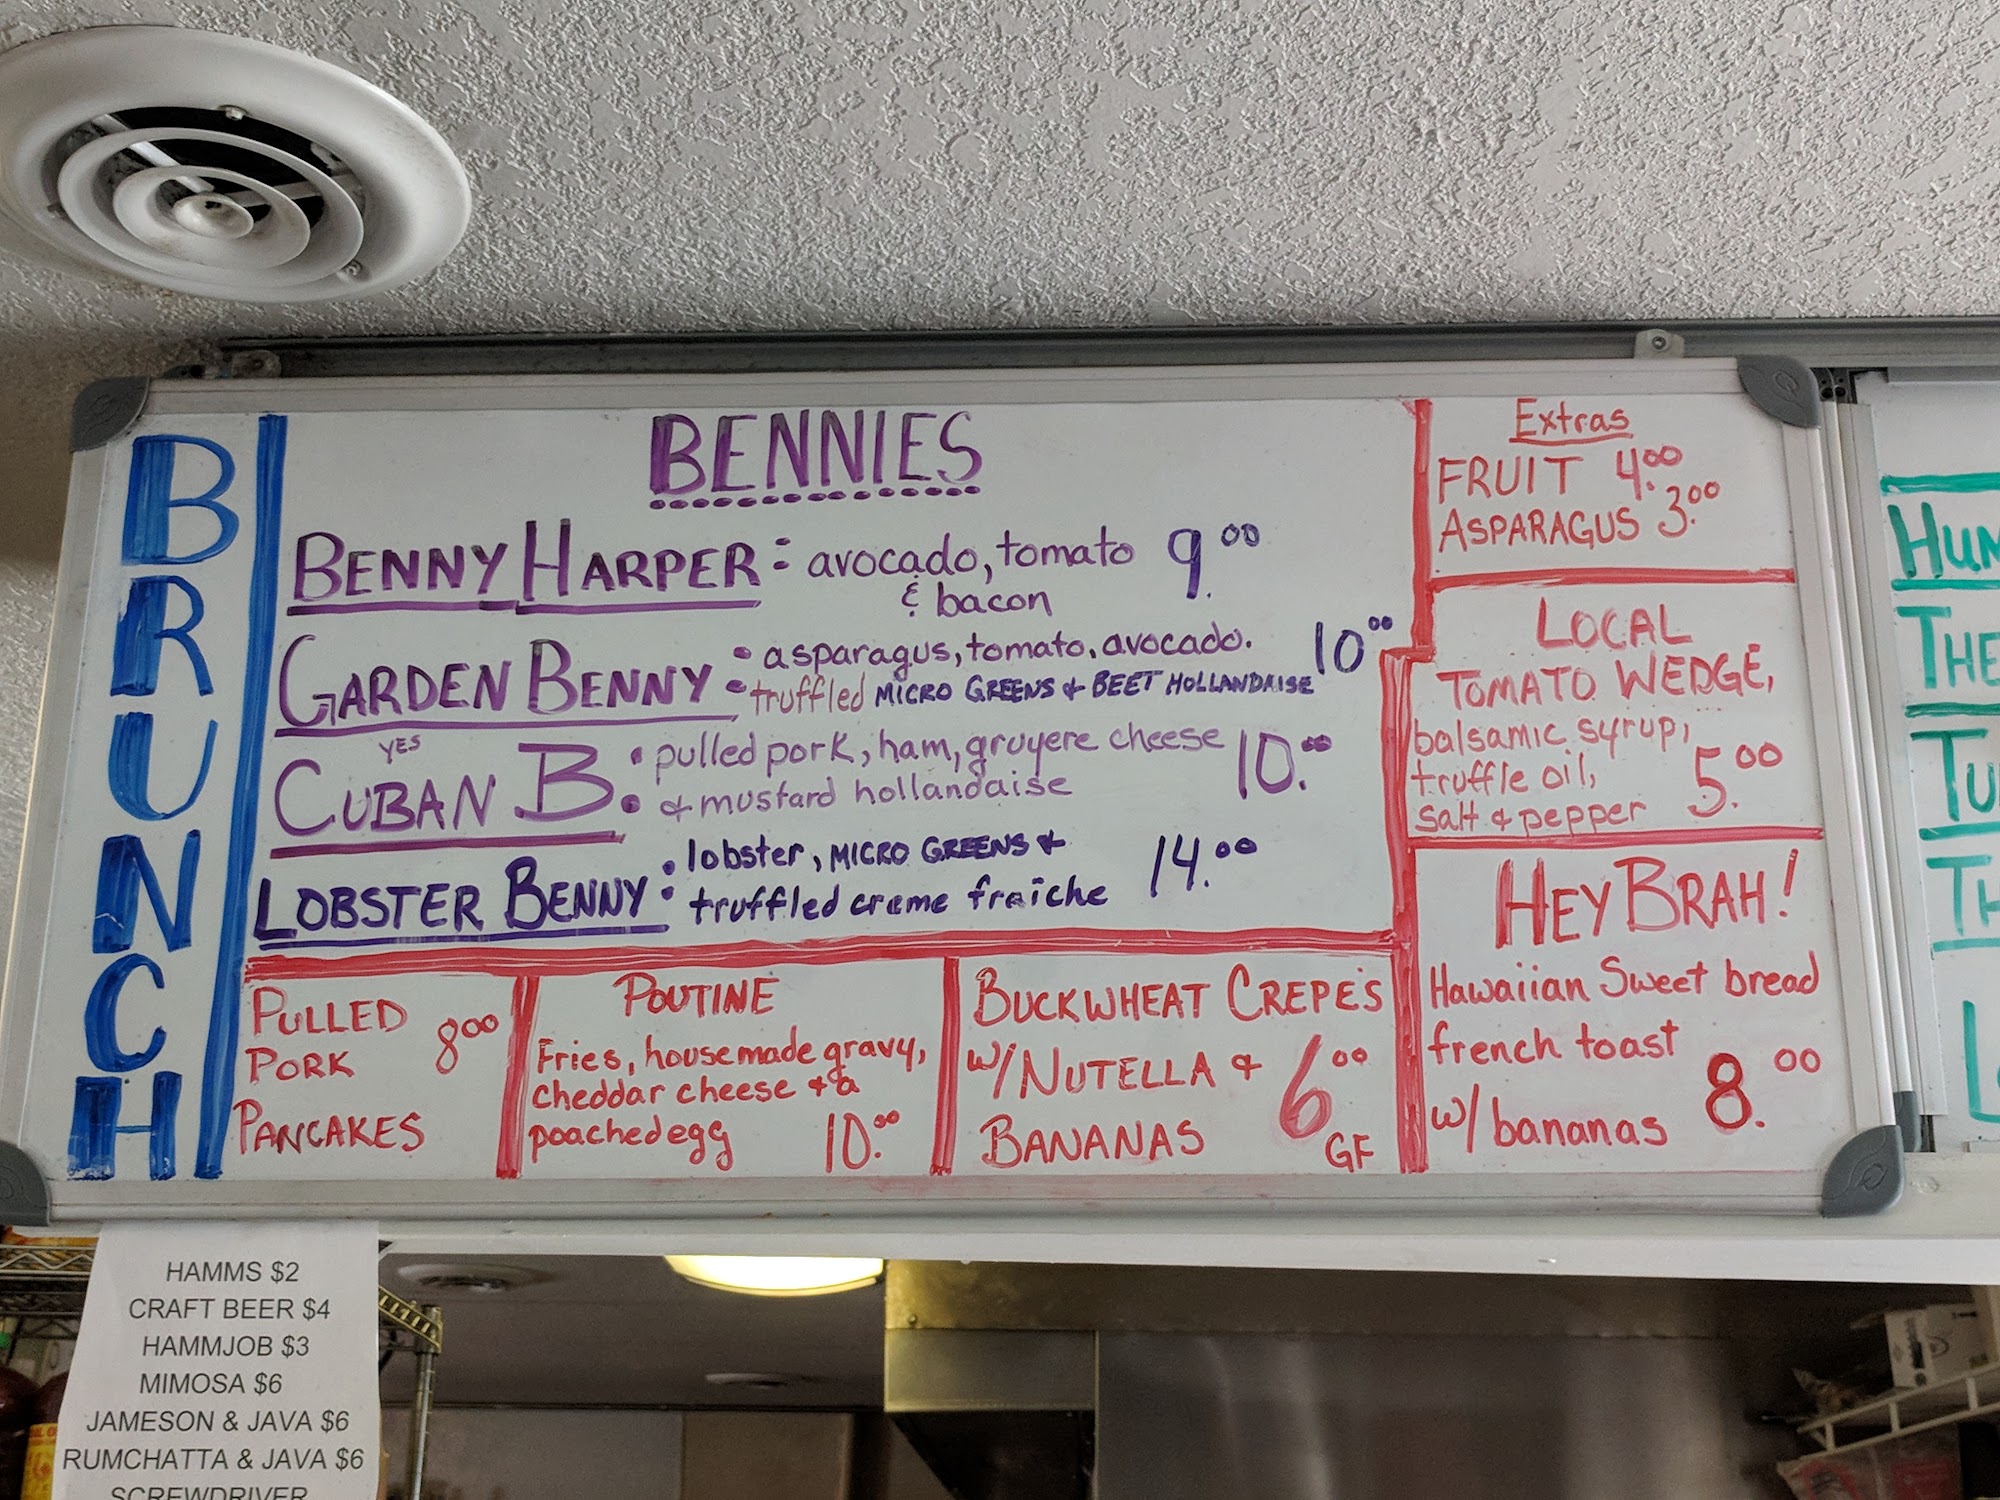 BRUNCH
BENNIES
BENNY HARPER: avocado, tomato 9.00
& bacon
GARDEN BENNY: asparagus, tomato, avocado. 10.00
truffled MICRO GREENS & BEET HOLLANDAISE
YES
CUBAN B.: pulled pork, ham, gruyere cheese 10.00
& mustard hollandaise
LOBSTER BENNY: lobster, MICRO GREENS & 14.00
truffled creme fraiche
Extras
FRUIT 4.00
ASPARAGUS 3.00
LOCAL
TOMATO WEDGE,
balsamic syrup,
truffle oil, 5.00
salt & pepper
HEY BRAH!
Hawaiian Sweet bread
french toast
w/ bananas 8.00
PULLED 8.00
PORK
PANCAKES
POUTINE
Fries, housemade gravy,
cheddar cheese & a
poached egg 10.00
BUCKWHEAT CREPE'S
w/ NUTELLA & 6.00
BANANAS GF
HAMMS $2
CRAFT BEER $4
HAMMJOB $3
MIMOSA $6
JAMESON & JAVA $6
RUMCHATTA & JAVA $6
SCREWDRIVER
HUM
THE
TU
TH
L